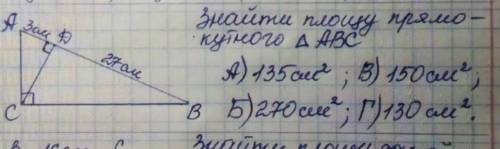 A 3см D
27см
C B
Знайти площу прямо-
кутного △ ABC
А) 135см²; В) 150см²;
Б) 270см²; Г) 130см².